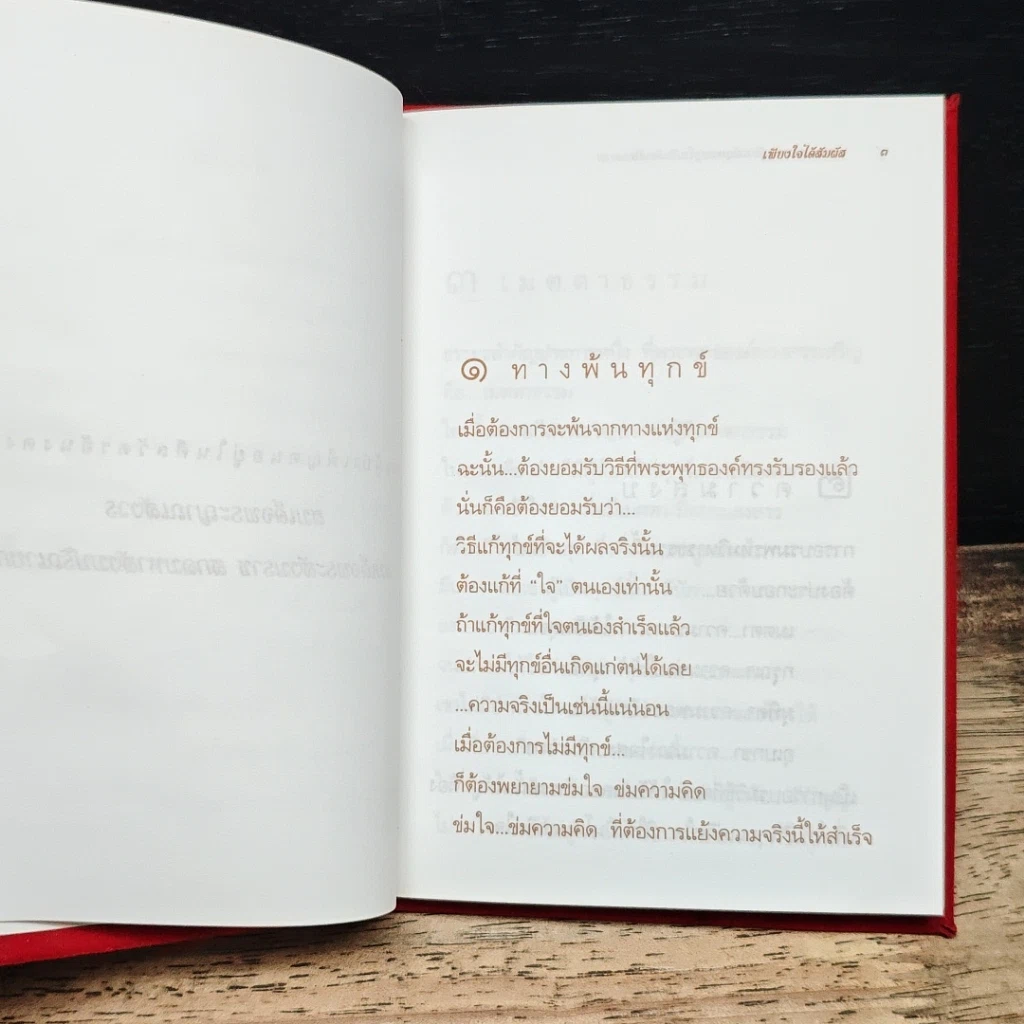 เพียงใจได้สัมผัส ๓
๑ ทางพ้นทุกข์
เมื่อต้องการจะพ้นจากทางแห่งทุกข์
ฉะนั้น...ต้องยอมรับวิธีที่พระพุทธองค์ทรงรับรองแล้ว
นั่นก็คือต้องยอมรับว่า...
วิธีแก้ทุกข์ที่จะได้ผลจริงนั้น
ต้องแก้ที่ “ใจ” ตนเองเท่านั้น
ถ้าแก้ทุกข์ที่ใจตนเองสำเร็จแล้ว
จะไม่มีทุกข์อื่นเกิดแก่ตนได้เลย
...ความจริงเป็นเช่นนี้แน่นอน
เมื่อต้องการไม่มีทุกข์...
ก็ต้องพยายามข่มใจ ข่มความคิด
ข่มใจ...ข่มความคิด ที่ต้องการแย้งความจริงนี้ให้สำเร็จ